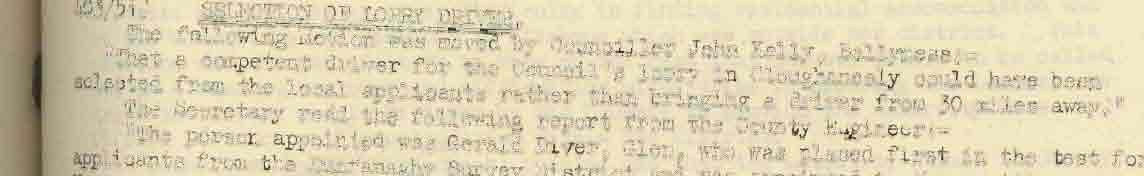 153/51. SELECTION OF LORRY DRIVER.
The following Motion was moved by Councillor John Kelly, Ballyness:
"That a competent driver for the Council's lorry in Cloughaneely could have been
selected from the local applicants rather than bringing a driver from 30 miles away."
The Secretary read the following report from the County Engineer:-
"The person appointed was Gerald Diver, Glen, who was placed first in the test for
applicants from the Survey District and was